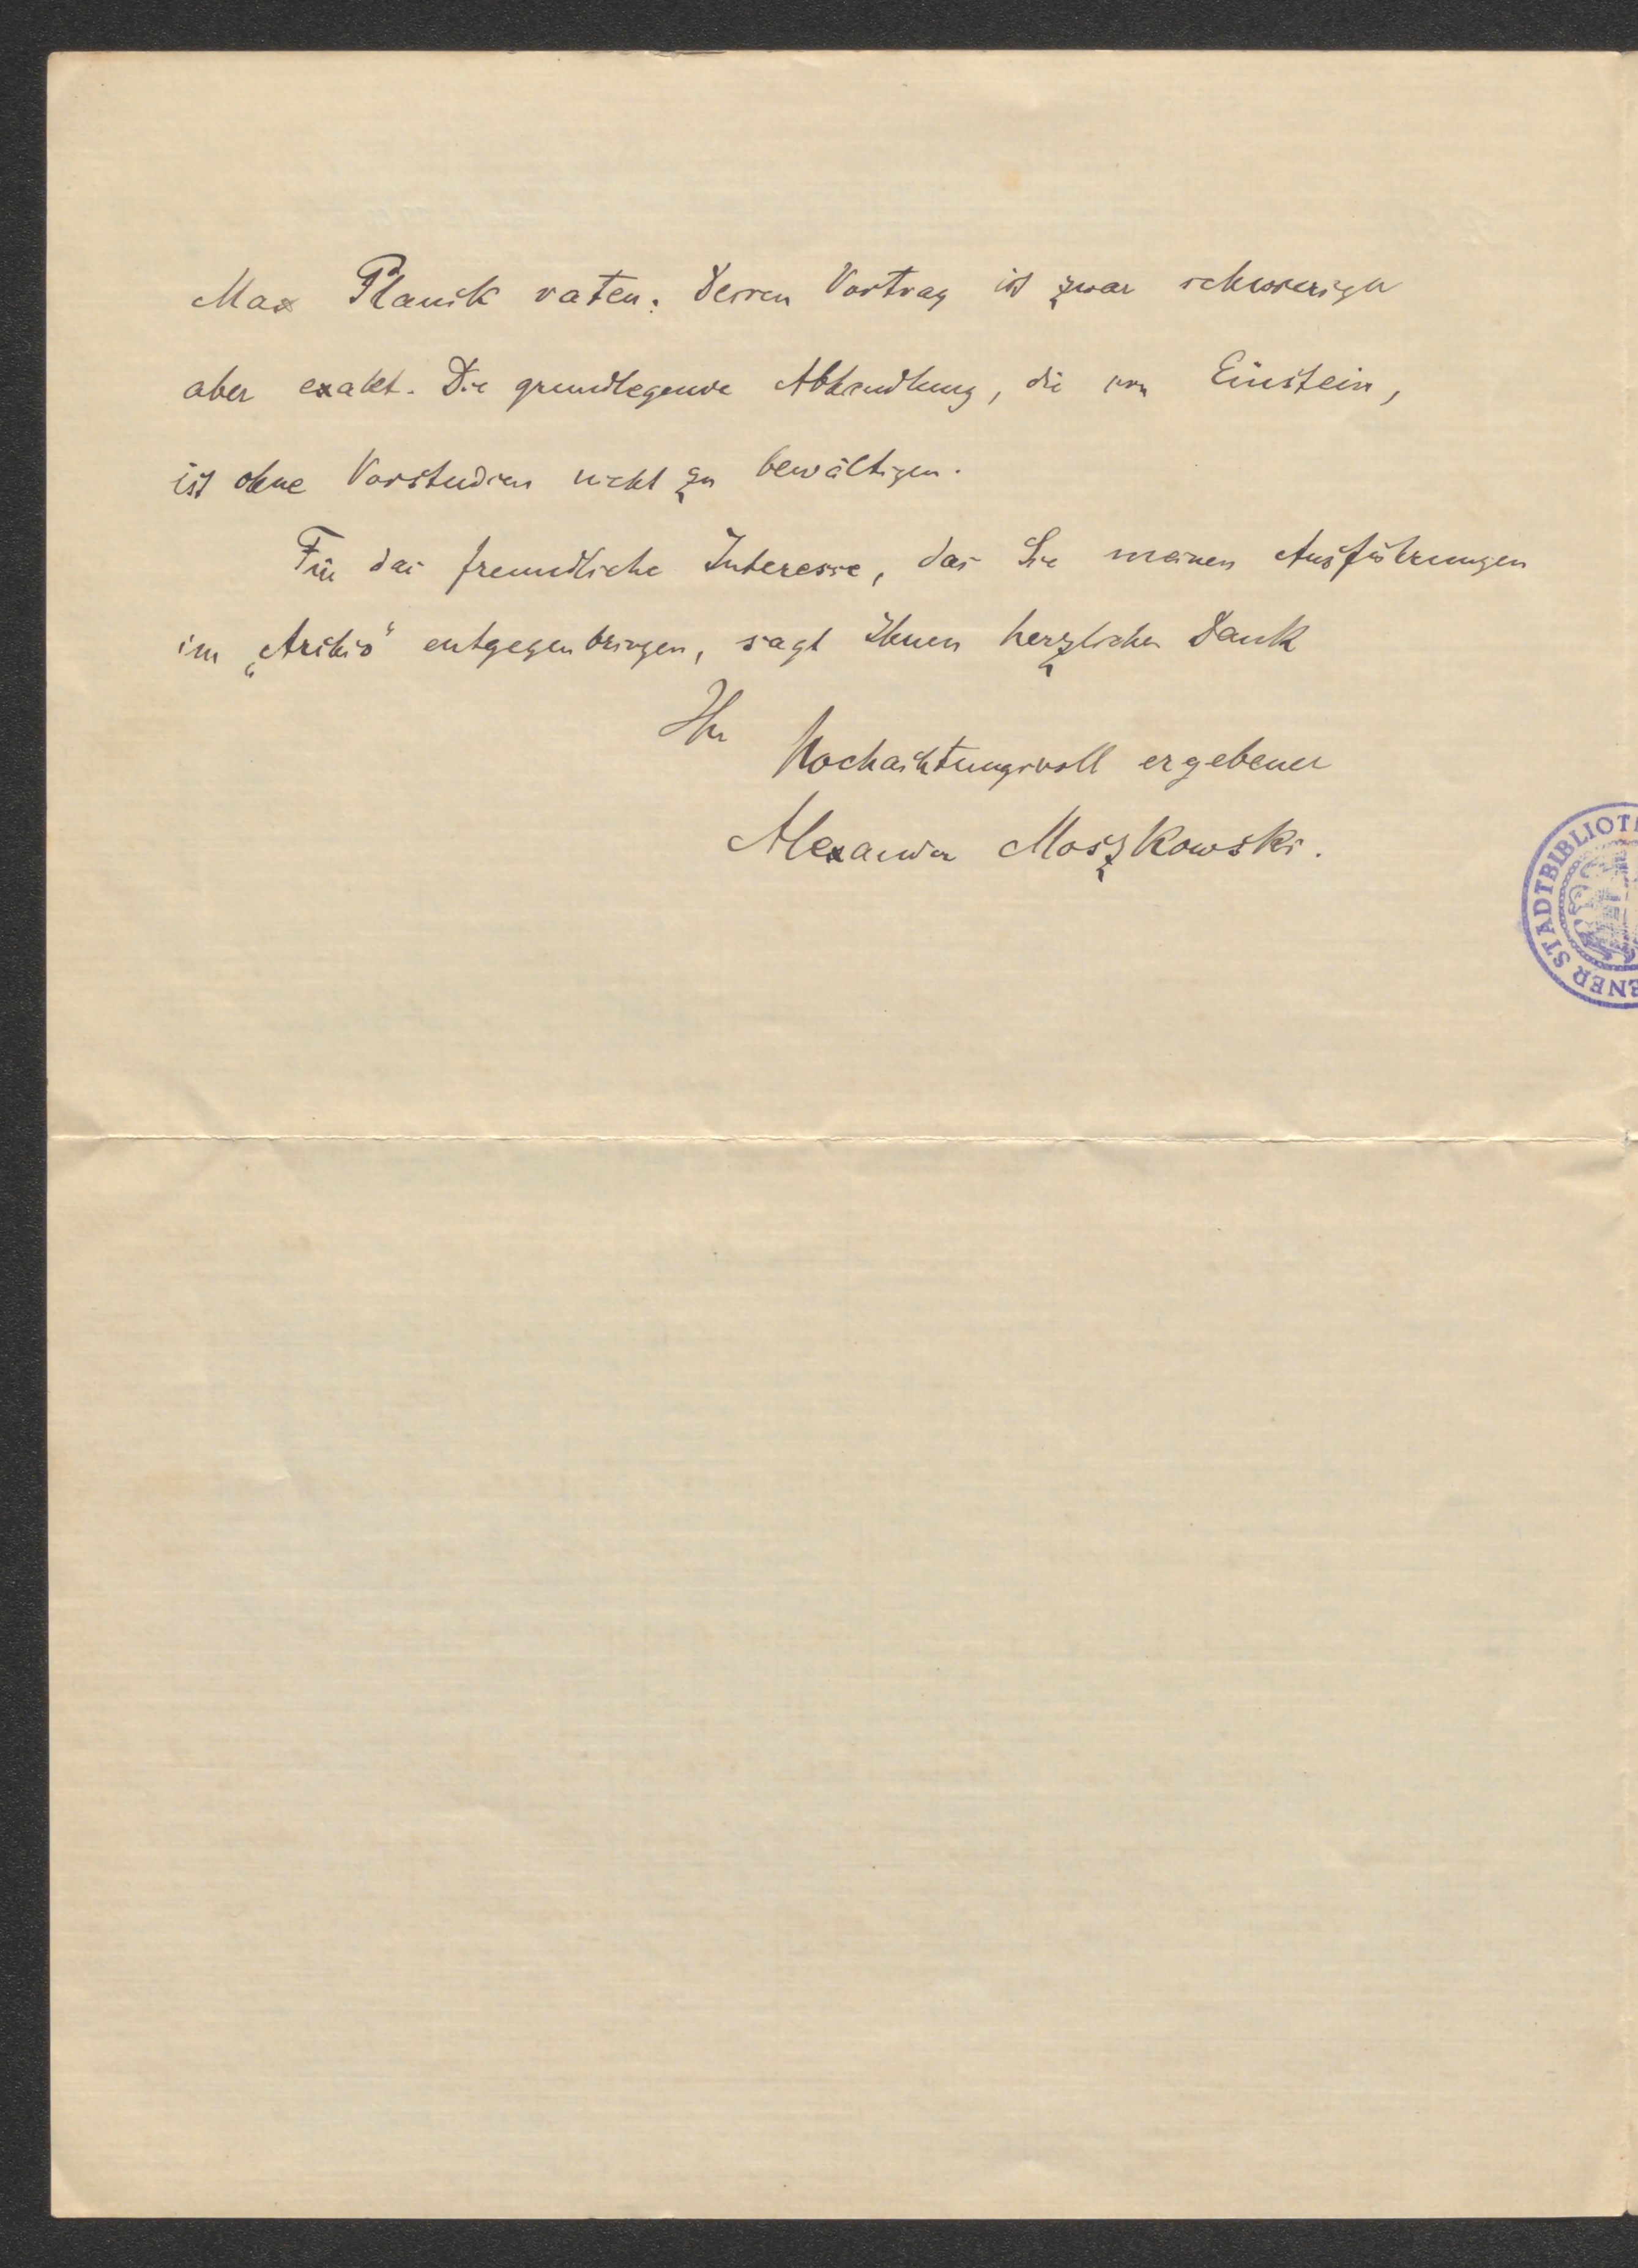 Max Planck raten. Dessen Vortrag ist zwar schwieriger
aber exakt. Die grundlegende Abhandlung, die von Einstein,
ist ohne Vorstudien nicht zu bewältigen.
Für das freundliche Interesse, das Sie meinen Ausführungen
im „Archiv" entgegenbringen, sagt Ihnen herzlichen Dank
Ihr
hochachtungsvoll ergebener
Alexander Moszkowski.
ENER STADTBIBLIOT